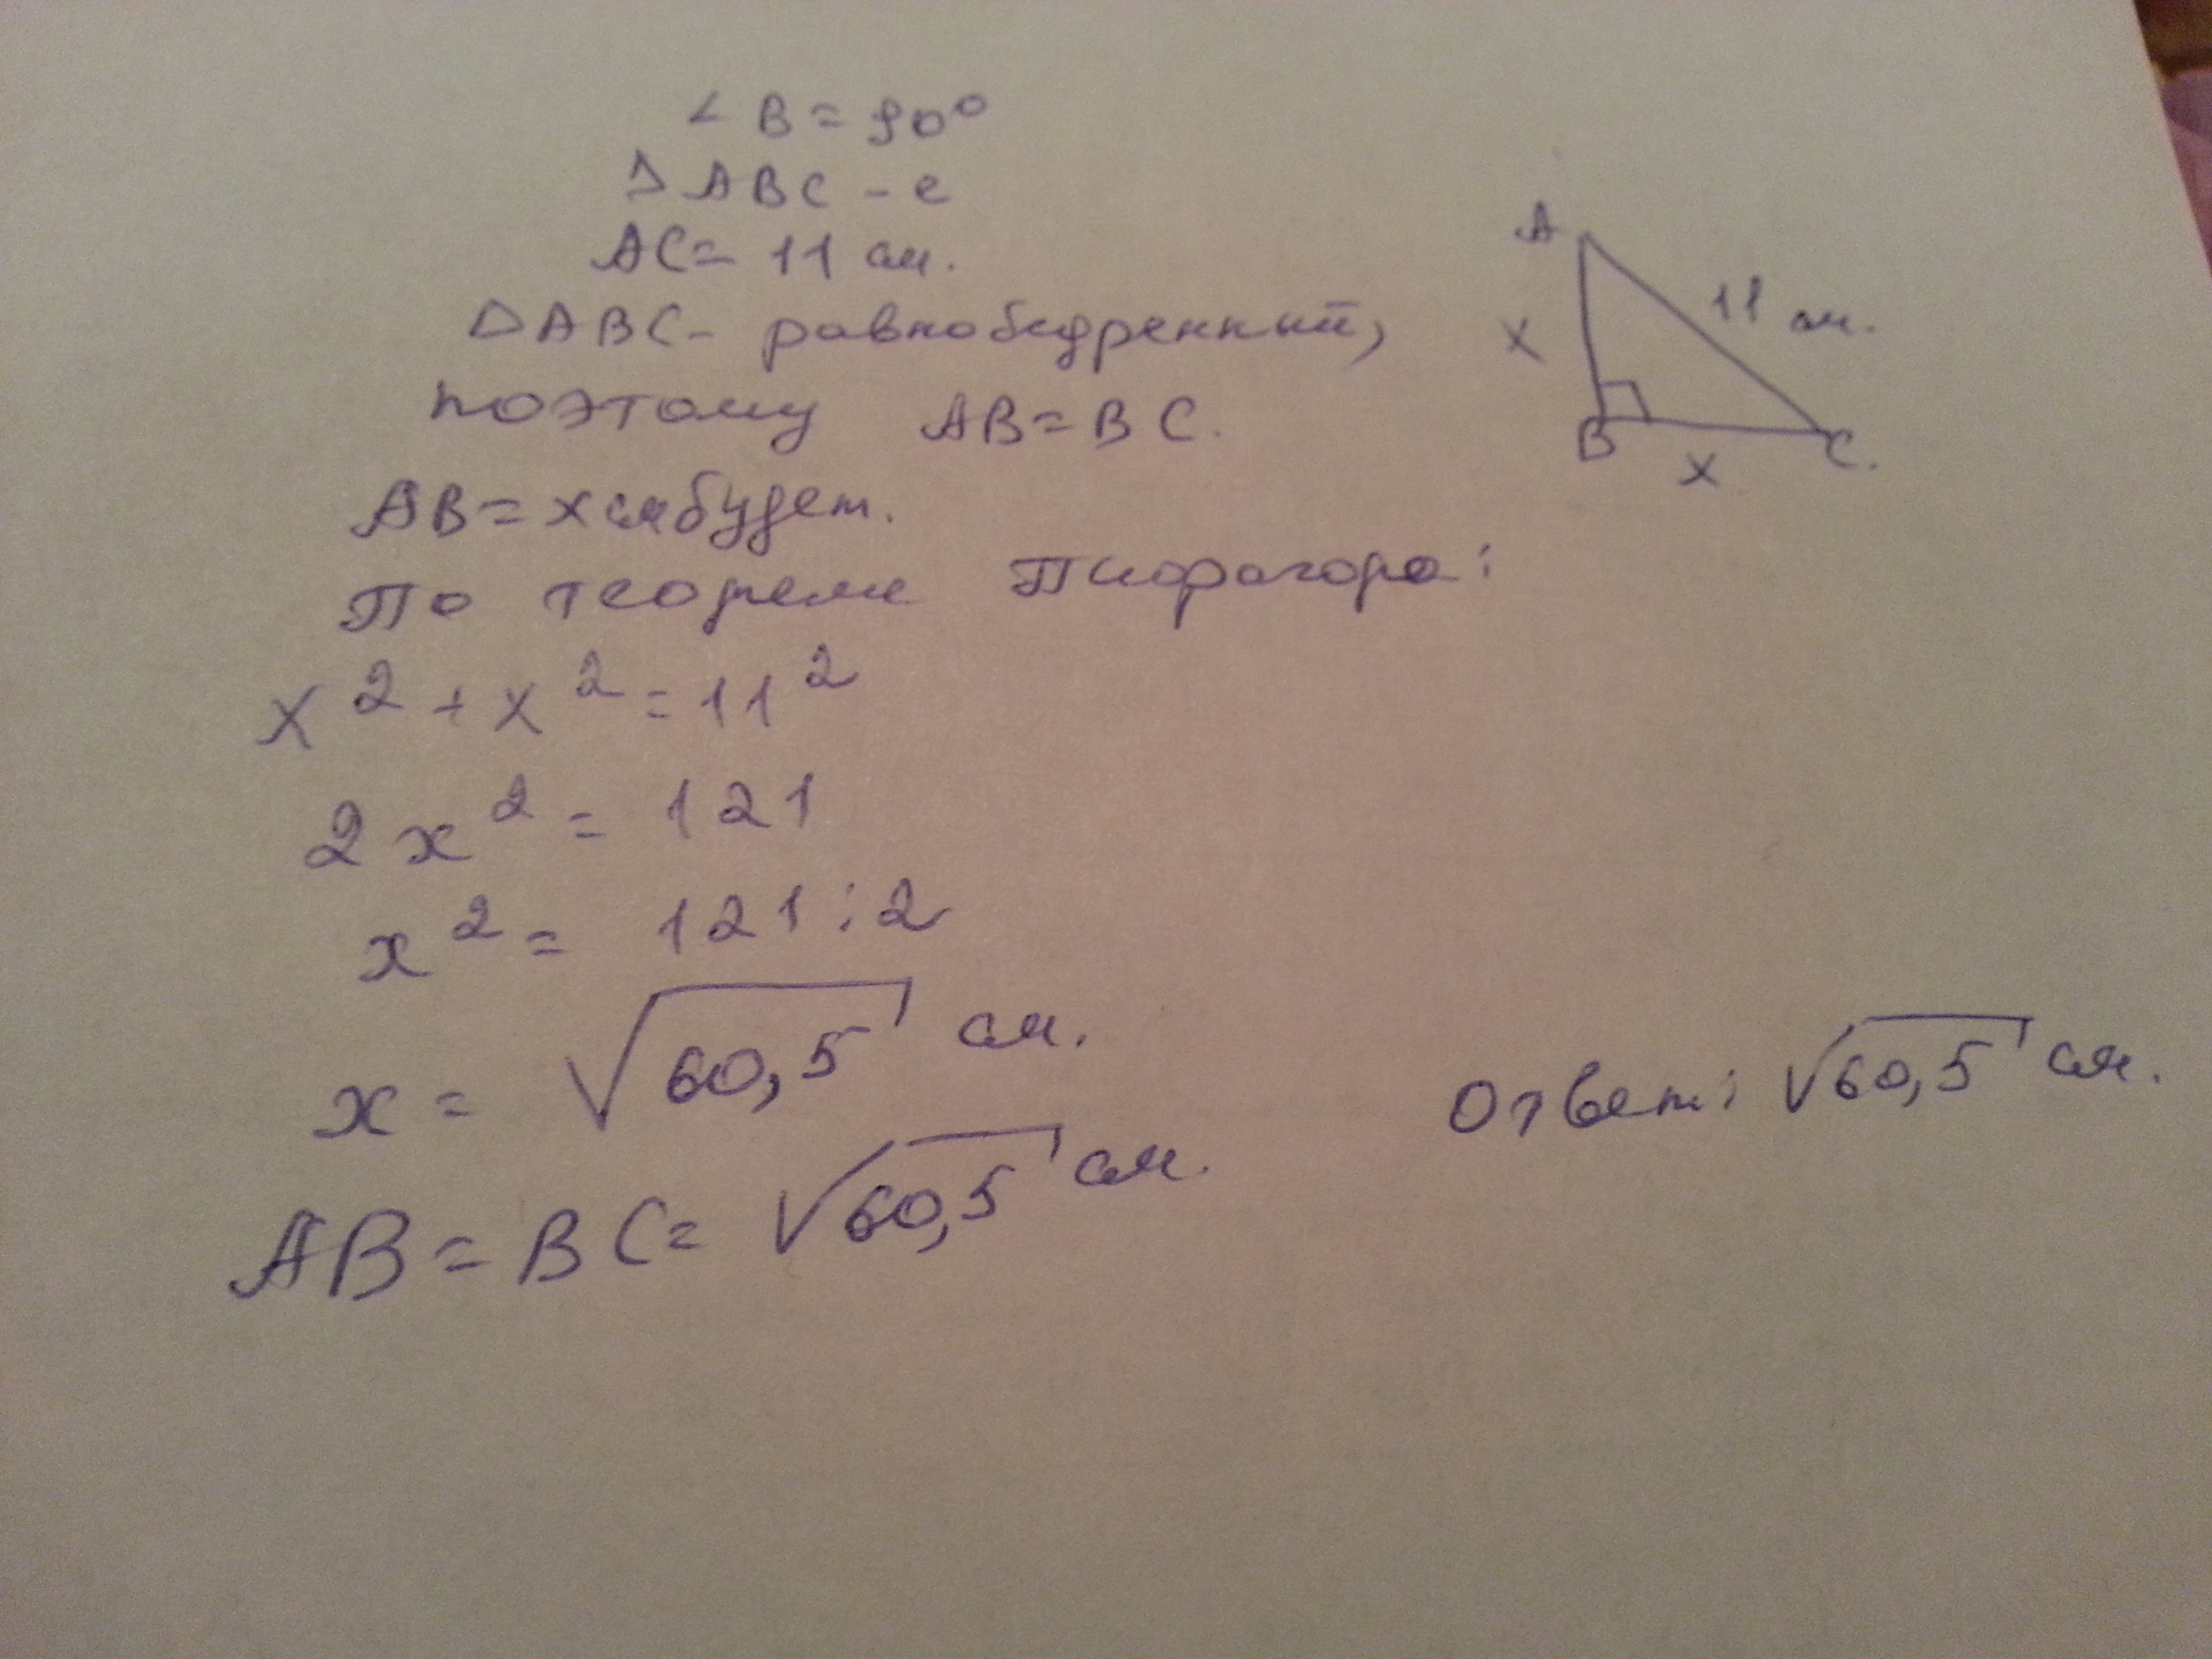 ∠ B = 90°
△ ABC - е
AC = 11 см.
△ ABC - равнобедренный,
поэтому AB = BC.
AB = x см будет.
По теореме Пифагора:
x² + x² = 11²
2x² = 121
x² = 121 : 2
x = √60,5 см.
AB = BC = √60,5 см.
Ответ: √60,5 см.
A
11 см.
x
B
x
C.